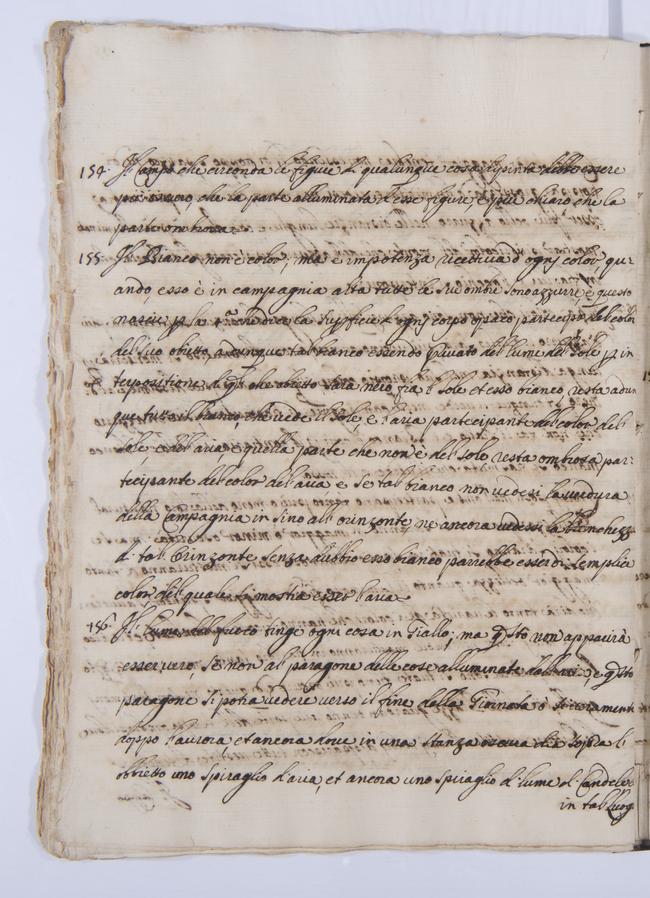 154. Il Campo che circonda le figure di qualunque cosa dipinta debbe essere
più oscuro, che la parte alluminata d'esse figure e più chiaro che la
parte ombrosa.
155. Il Bianco non è color, ma è in potenza ricettiva d'ogni color, qu-
ando esso è in campagnia alta tutte le sue ombre sono azzurri, e questo
nascie p la 4.a che dice la supficie d'ogni corpo opaco partecipa del color
del suo obietto, adunque tal bianco essendo privato del lume del sole p in
terpositione di q.o che obietto sara mezo fra il sole et esso bianco, resta adun
que tutto il bianco, che vede il sole, e l'aria partecipante del color del
sole, e dell'aria e quella parte che non è del sole resta ombrosa par-
tecipante del color del'aria, e se tal bianco non vedesi la verdura
della Campagnia in sino all'orinzonte ne ancora vedessi la bianchezz
di tal Orinzonte senza dubbio esso bianco parrebbe esser di semplice
color del quale si mostra esser l'aria.
156. Il lume del fuoco tinge ogni cosa in Giallo; ma q.sto non apparirà
esser vero, se non al paragone delle cose alluminate dall'aria, e q.sto
paragone si potrà vedere verso il fine della Giornata ò sicuramente
doppo l'aurora, et ancora dove in una stanza oscura dia sopra l'
obbietto uno spiraglio d'aria, et ancora uno spiraglio di lume di Candela
in tal luog